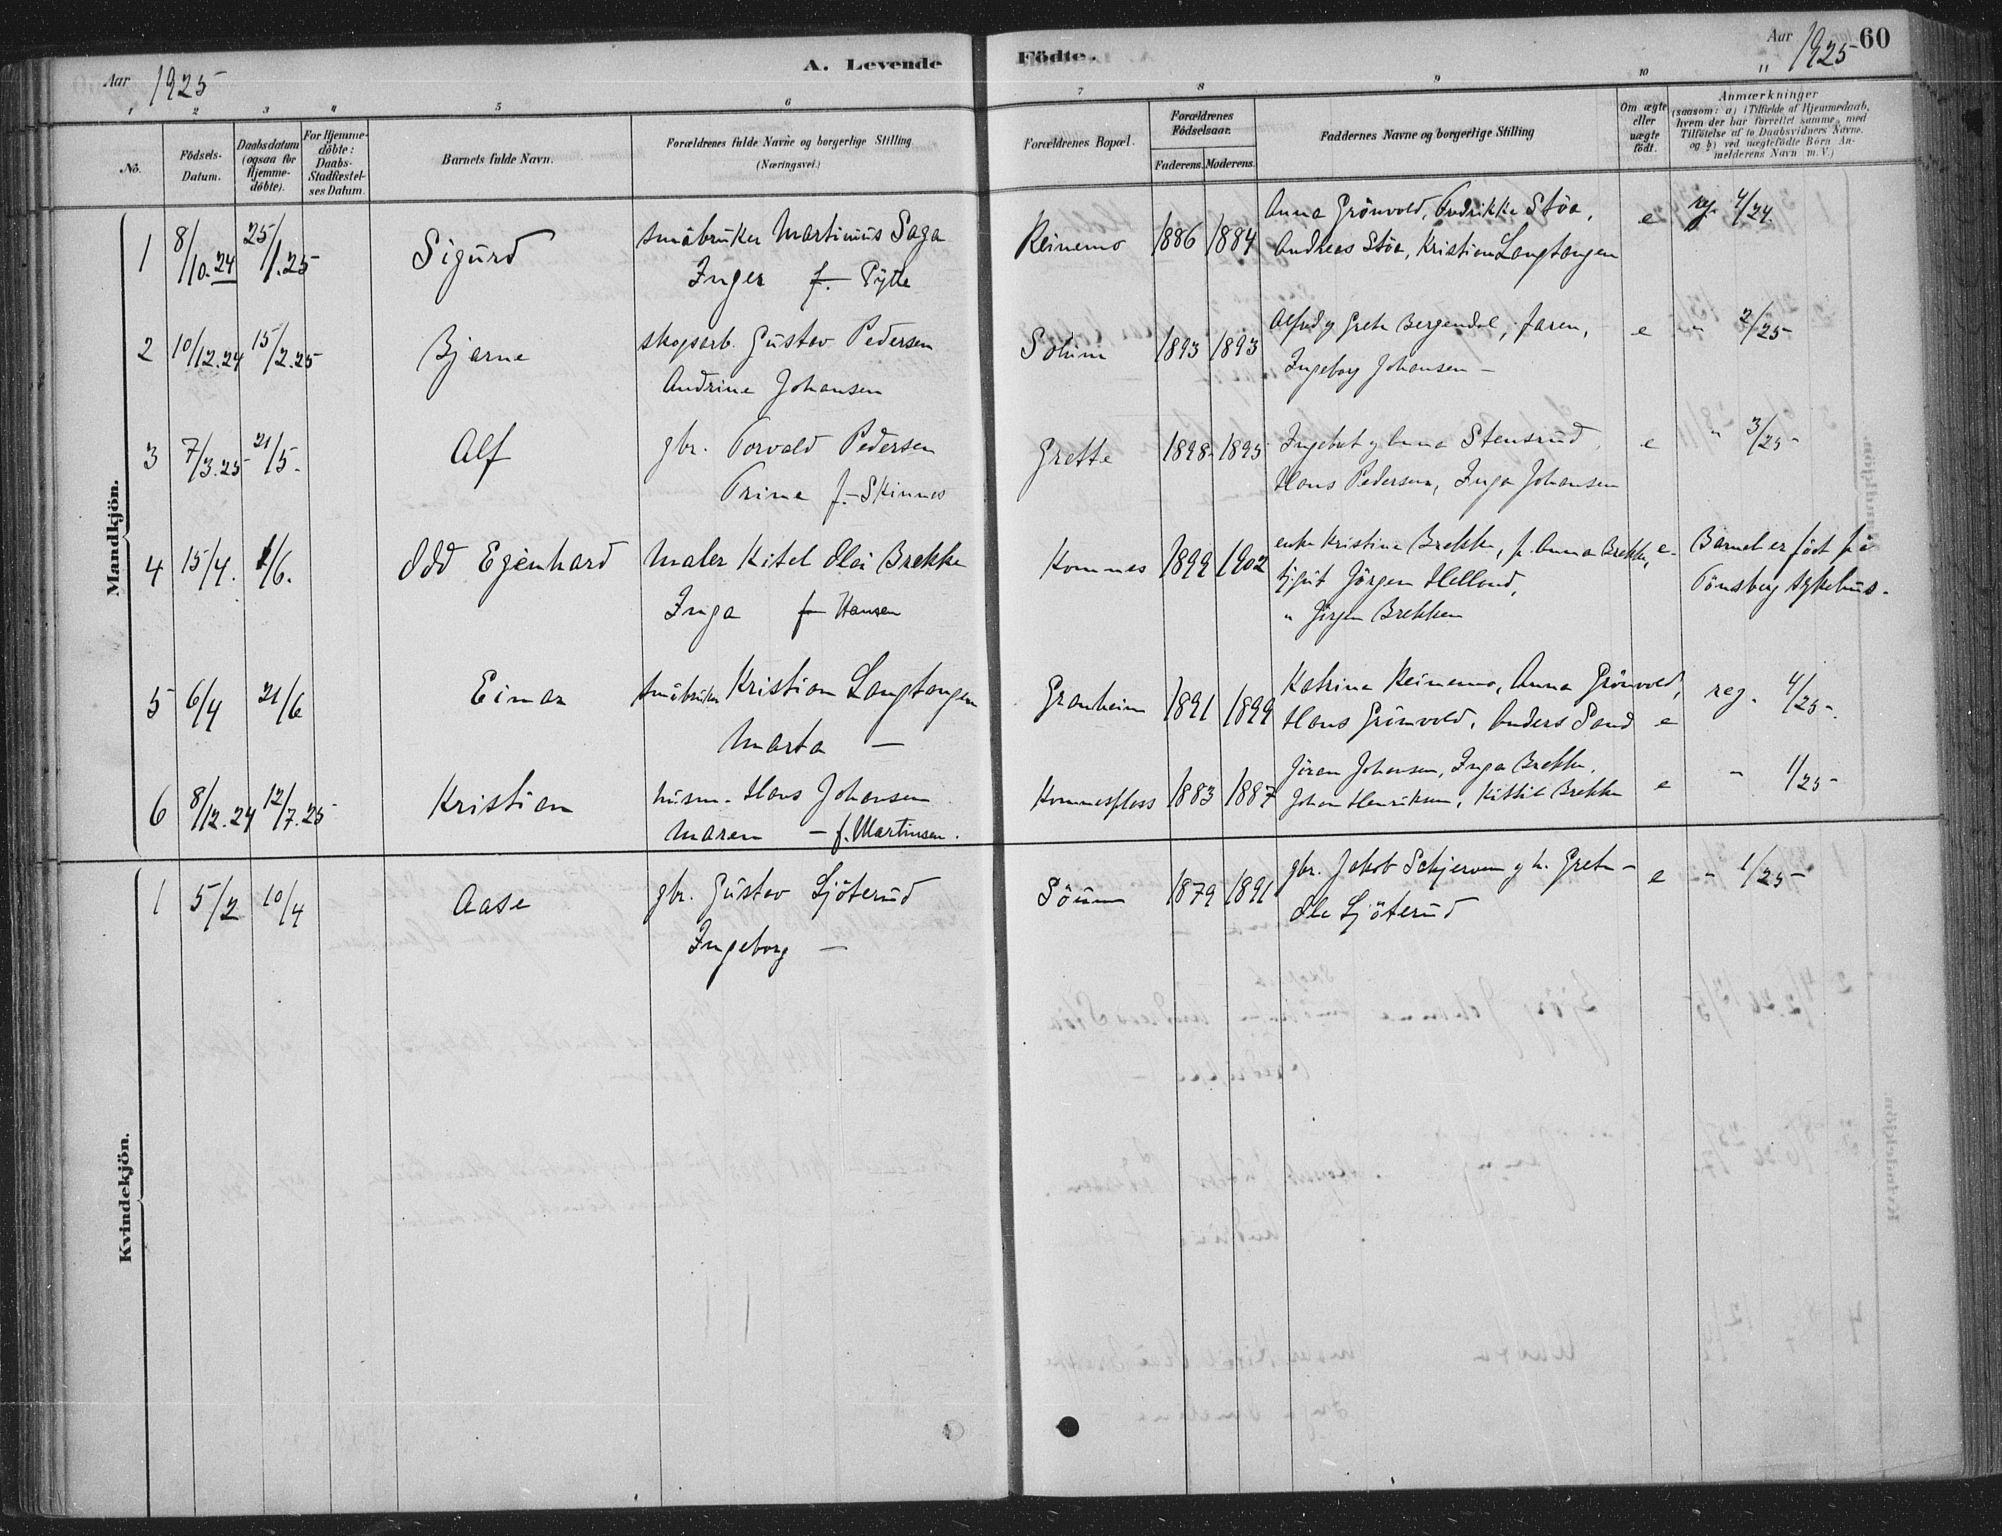 Aar 1925
A. Levende Födte.
Aar 1925 60
1 2 3 4 5 6 7 8 9 10 11
No.
Födsels-Datum.
Daabsdatum (ogsaa for Hjemme-döbte).
For Hjemme-döbte: Daabs-Stadfæstel-ses Datum.
Barnets fulde Navn.
Forældrenes fulde Navne og borgerlige Stilling
(Næringsvei.)
Forældrenes Bopæl.
Forældrenes Födselsaar.
Faderens. Moderens.
Faddernes Navne og borgerlige Stilling
Om ægte eller uægte födt.
Anmærkninger
(saasom: a) i Tilfælde af Hjemmedaab,
hvem der har forrettet samme, med
Tilföielse af to Daabsvidners Navne.
og b) ved uægtefödte Börn An-
melderens Navn m.V.)
Mandkjön.
1 8/10.24 25/1.25 Sigurd småbruker Martinius Saga Reinemo 1886 1884 Anna Grönvold, Fredrikke Stöa, e rg. 4/24
Inger f. Pytte Andreas Stöa, Kristian Langtangen
2 10/12.24 15/2.25 Bjarne skogsarb. Gustav Pedersen Solum 1893 1893 Alfred g Grete Bergendal, faren, e " 2/25
Andrine Johansen Ingeborg Johansen -
3 7/3.25 21/5. Alf gbr. Torvald Pedersen Grette 1898 1895 Ingebret g Anna Stensrud e " 3/25
Trine f. Skinnes Hans Pedersen, Inga Johansen
4 15/4. 1/6. Odd Egenhard Maler Kitel Olai Brekke Komnes 1899 1902 enke Kristine Brekke, p. Anna Brekke, e. Barnet er födt på
Inga f Hansen Jörgen Helland, Tönsberg sykehus.
" Jörgen Brekken
5 6/4 21/6 Einar småbruker Kristian Langtangen Granheim 1891 1899 Katrine Reinemo, Anna Grönvold, reg. 4/25.
Marta - Hans Grönvold, Anders Sand e
6 8/12.24 12/7.25 Kristian husm. Hans Johansen Komnesfloss 1883 1887 Jöran Johansen, Inga Brekke, e " 1/25
Maren - f. Martinsen. Johan Henriksen, Kittil Brekke
Kvindekjön.
1 5/2 10/4 Aase gbr. Gustav Sjöterud Söum 1879 1891 gbr. Jakob Schjerven g h. Grete - e " 1/25
Ingeborg - Ole Sjöterud